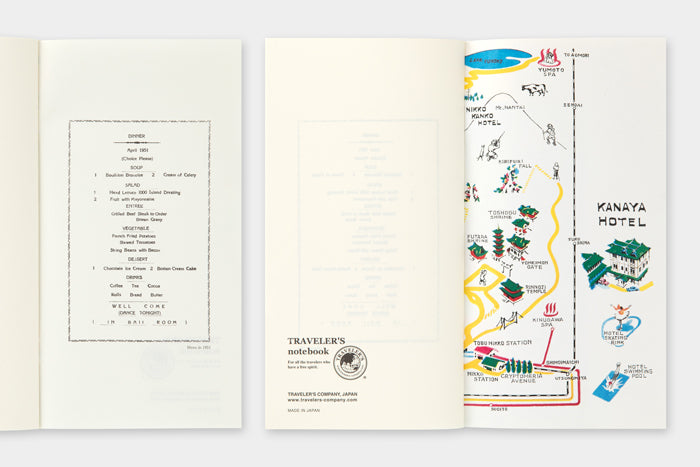 DINNER
April 1951
(Choice Please)
SOUP
1 Bouillon Brunoise 2 Cream of Celery
SALAD
1 Head Lettuce 1000 Island Dressing
2 Fruit with Mayonnaise
ENTREE
Grilled Beef Steak to Order
Brown Gravy
VEGETABLE
French Fried Potatoes
Stewed Tomatoes
String Beans with Bacon
DESSERT
1 Chocolate Ice Cream 2 Boston Cream Cake
DRINKS
Coffee Tea Cocoa
Rolls Bread Butter
WELL COME
(DANCE TONIGHT)
( IN BALL ROOM )
Menu in 1951
TRAVELER'S
notebook
For all the travelers who
have a free spirit.
TRAVELER'S COMPANY, JAPAN
www.travelers-company.com
MADE IN JAPAN
YUMOTO
SPA
TO AOMORI
SENDAI
Mt. NANTAI
NIKKO
KANKO
HOTEL
KIRIFURI
FALL
TOSHOGU
SHRINE
FUTARA
SHRINE
YOMEIMON
GATE
RINNOJI
TEMPLE
KANAYA
HOTEL
KINUGAWA
SPA
HOTEL
SKATING
RINK
TOBU NIKKO STATION
SHIMOIMAICHI
NIKKO
STATION
CRYPTOMERIA
AVENUE
UTSUNOMIYA
HOTEL
SWIMMING
POOL